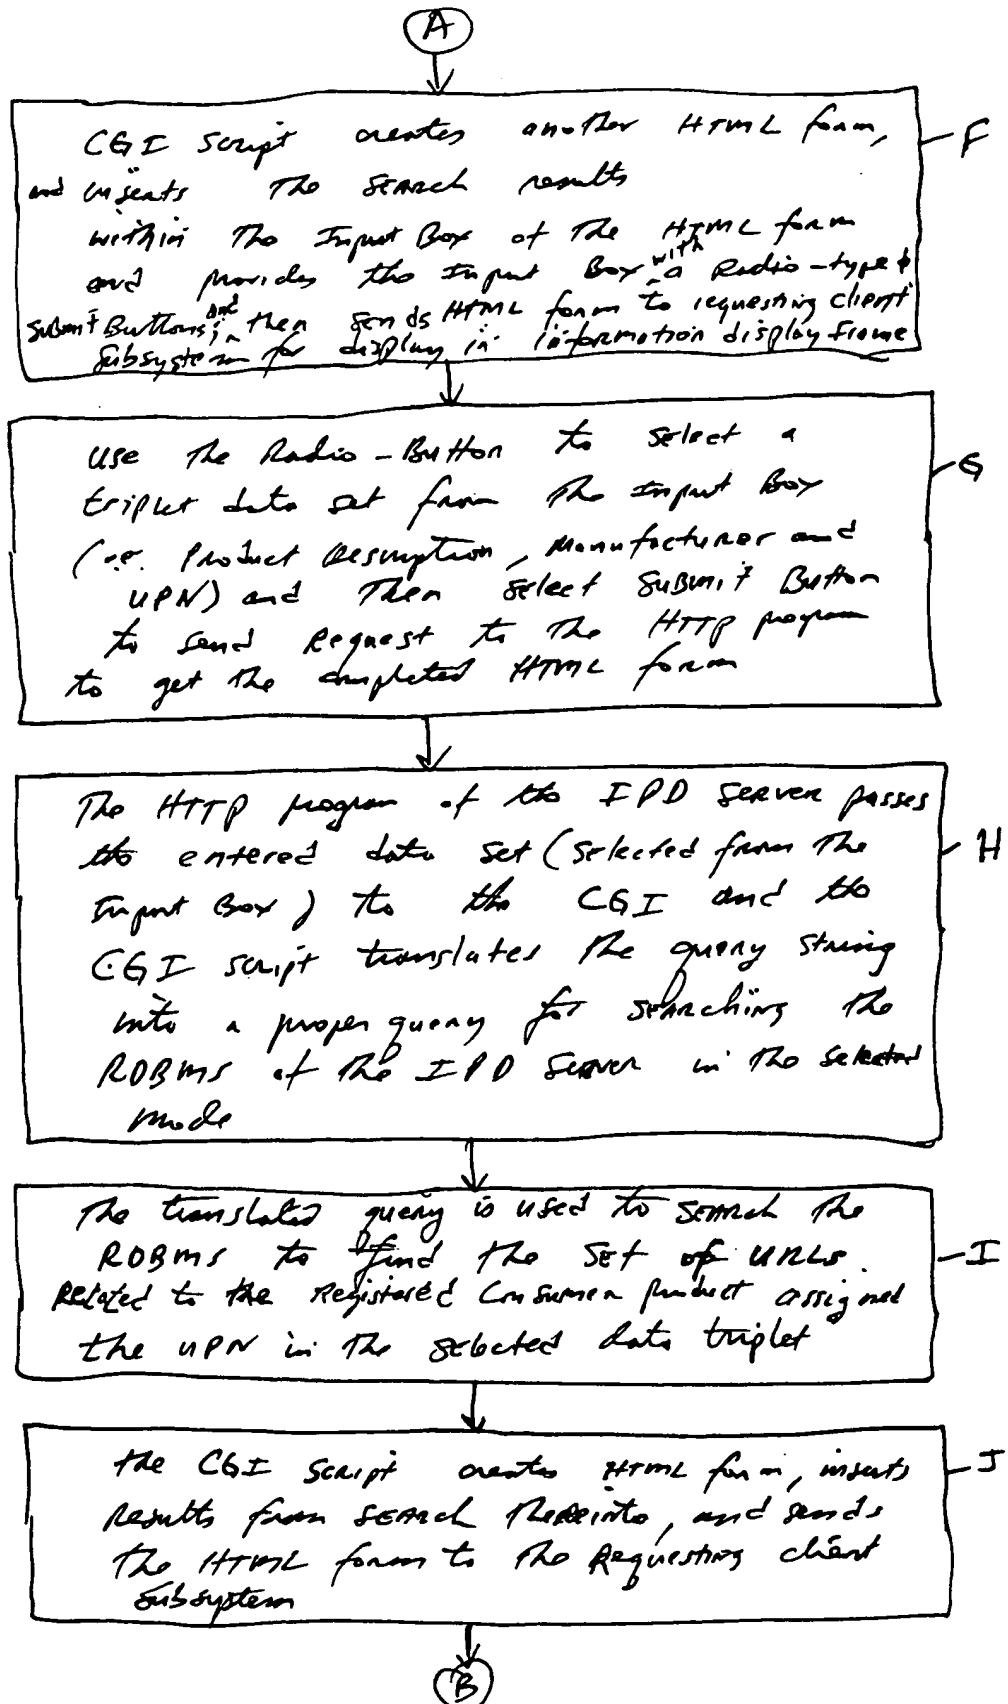 A
CGI Script creates another HTML form, F
and inserts the SEARCH results
within the Input Box of the HTML form
and provides the Input Box with a Radio-type &
Submit Buttons; and then sends HTML form to requesting client
Subsystem for display in information display frame
Use the Radio-Button to select a
triplet data set from the Input Box G
(i.e. Product Description, Manufacturer and
UPN) and Then Select Submit Button
to send Request to the HTTP program
to get the completed HTML form
The HTTP program of the IPD SERVER passes
the entered data set (selected from the H
Input Box) to the CGI and the
CGI script translates the query string
into a proper query for searching the
RDBMS of the IPD Server in the selected
mode
The translated query is used to SEARCH the
RDBMS to find the set of URLs I
Related to the Registered Consumer product assigned
the UPN in the selected data triplet
the CGI Script creates HTML form, inserts J
Results from SEARCH thereinto, and sends
the HTML form to the Requesting client
subsystem
B